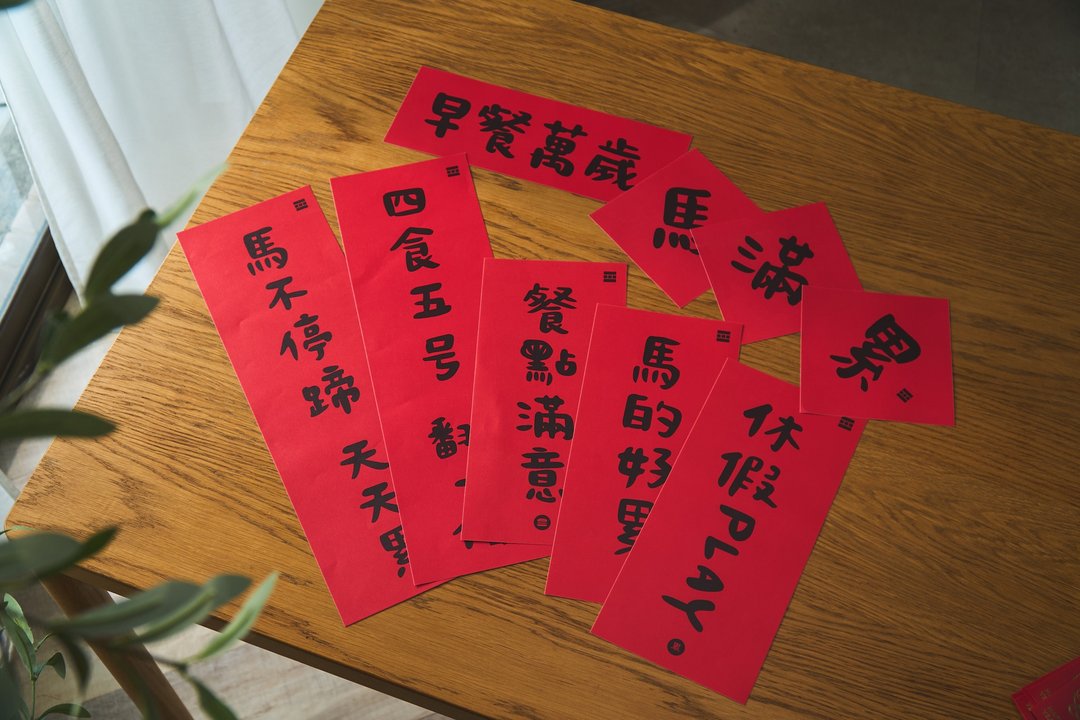 早餐萬歲
馬
滿
累
馬不停蹄 天天累
四食五号 翻
餐點滿意
馬的好累
休假PLAY